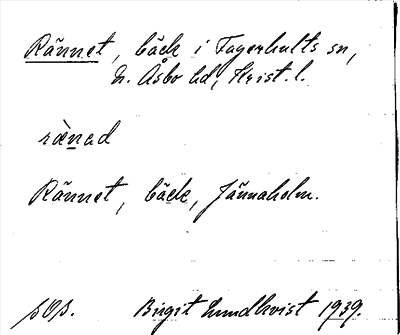 Rännet, bäck i Fagerhults sn,
N. Åsbo hd, Krist. l.
rä̀nad
Rännet, bäck, Jännaholm.
SOS. Birgit Lundkvist 1939.